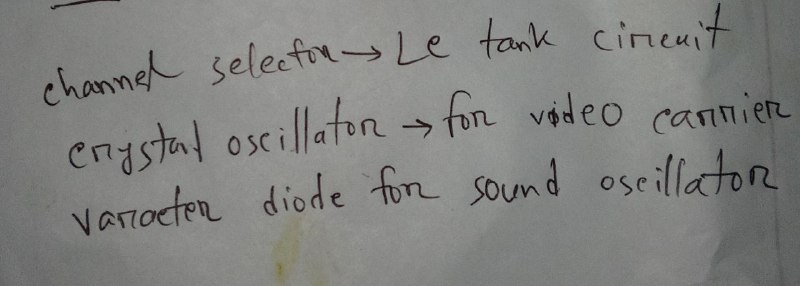 channel selector → Lc tank circuit
crystal oscillator → for video carrier
varacter diode for sound oscillator